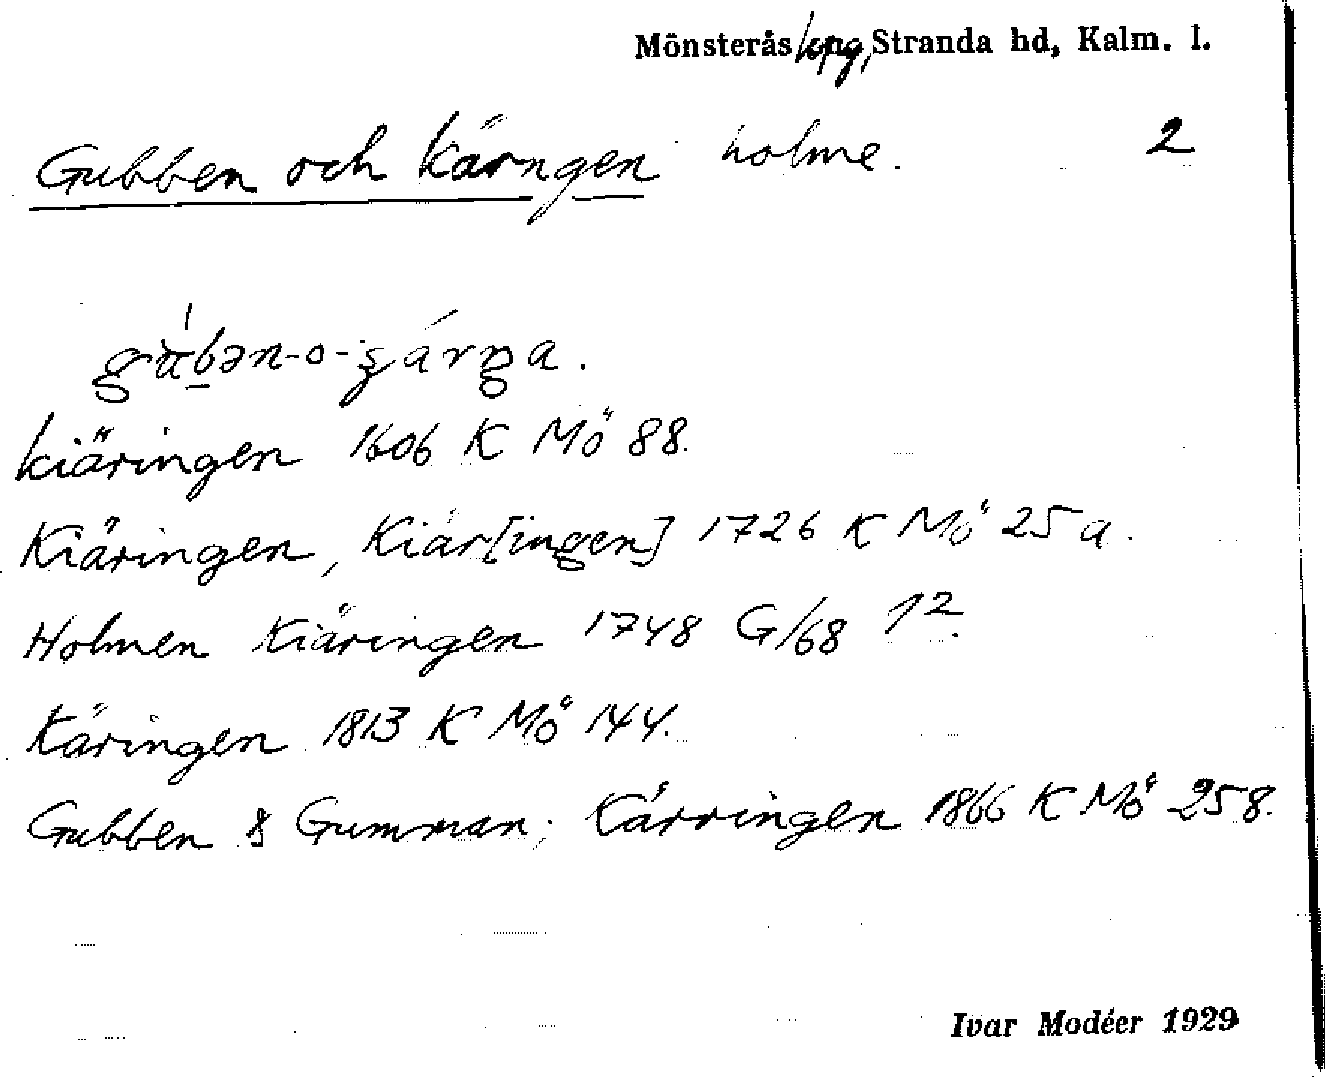 Mönsterås kpg, Stranda hd, Kalm. l.
Gubben och kärngen holme. 2
kiäringen 1606 K Mö 88.
Kiäringen, Kiär[ingen] 1726 K Mö 25 a.
Holmen Kiäringen 1748 G/68 1².
Käringen 1813 K Mö 144.
Gubben & Gumman; Kärringen 1866 K Mö 258.
Ivar Modéer 1929